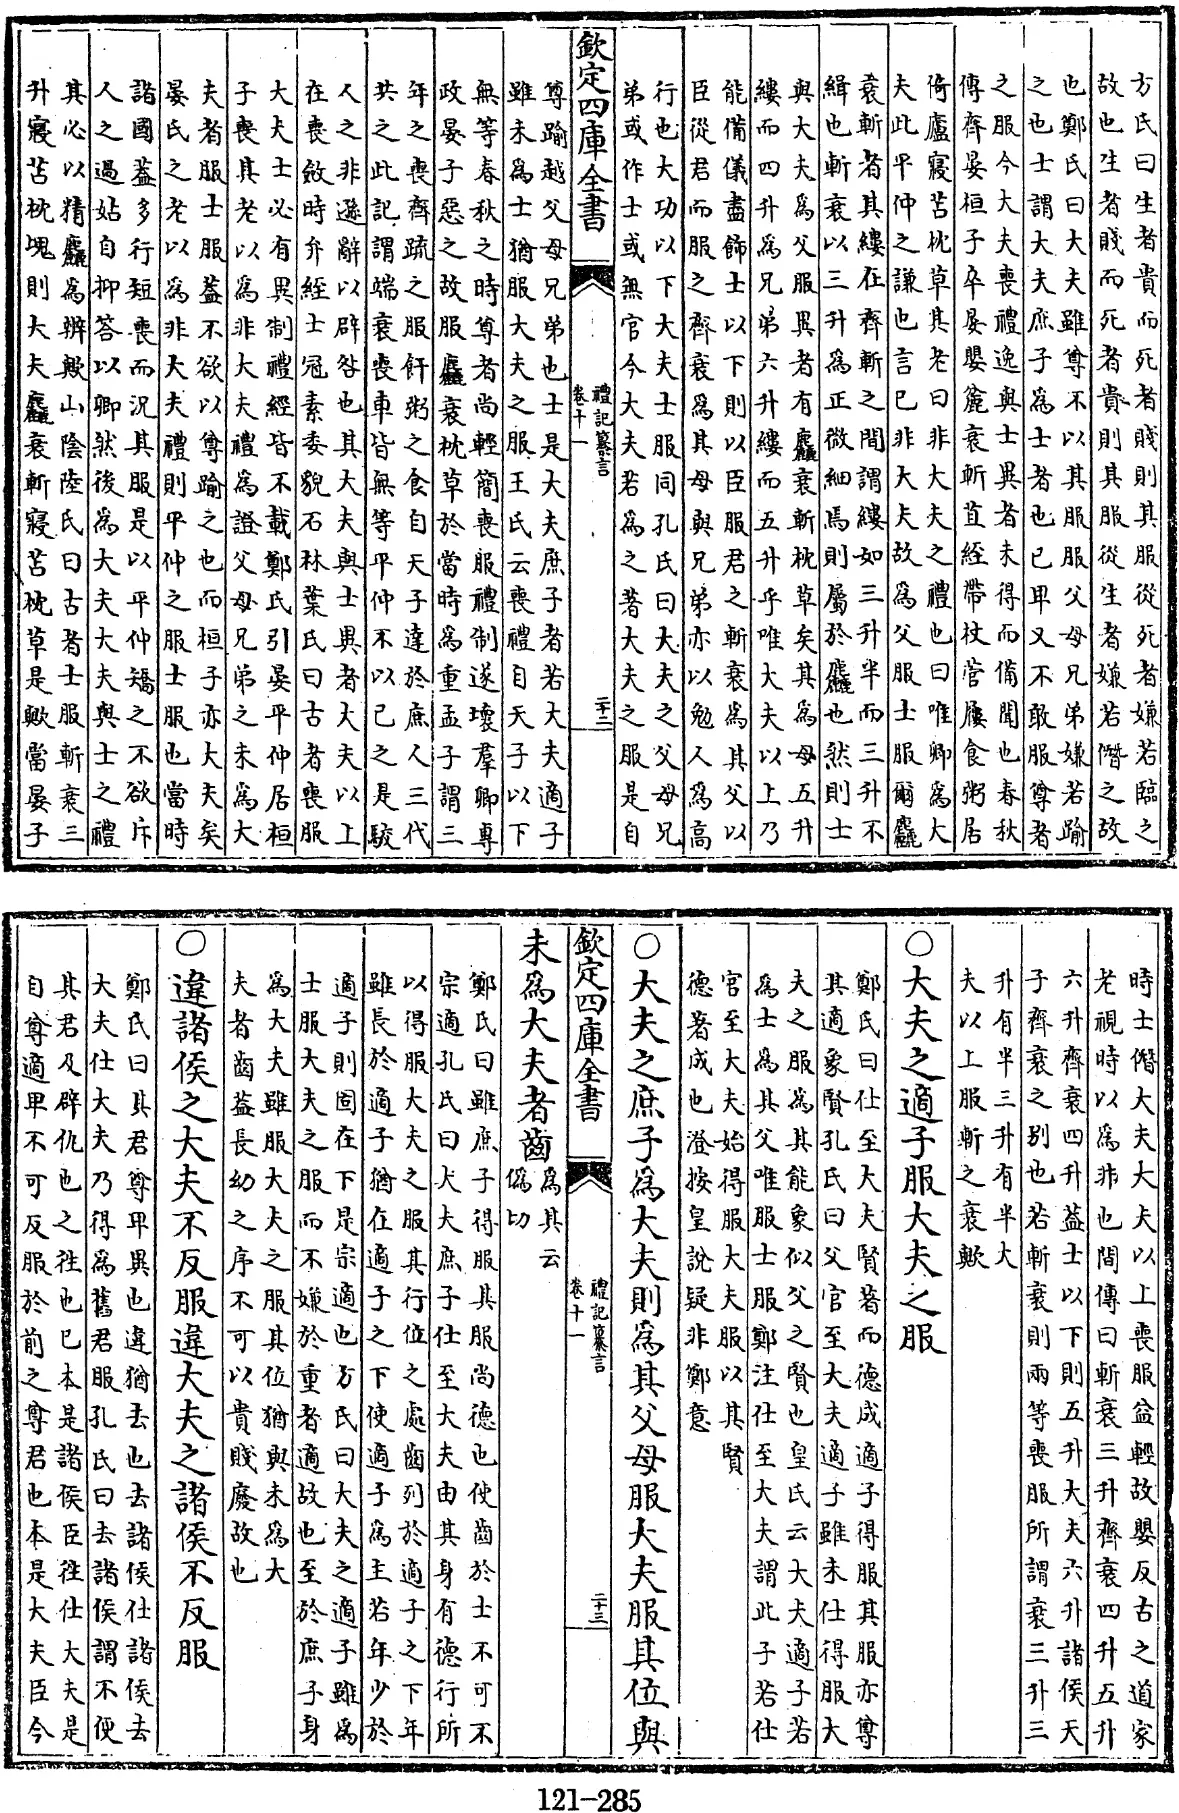 方氏曰生者貴而死者賤則其服從死者嫌若臨之
故也生者賤而死者貴則其服從生者嫌若僭之故
也鄭氏曰大夫雖尊不以其服服父母兄弟嫌若踰
之也士謂大夫庶子為士者也已卑又不敢服尊者
之服今大夫喪禮逸與士異者未得而備聞也春秋
傳齊晏桓子卒晏嬰麤衰斬苴絰帶杖菅屨食粥居
倚廬寢苫枕草其老曰非大夫之禮也曰唯卿為大
夫此平仲之謙也言已非大夫故為父服士服爾麤
衰斬者其縷在齊斬之間謂縷如三升半而三升不
緝也斬衰以三升為正微細焉則屬於麤也然則士
與大夫為父服異者有麤衰斬枕草矣其為母五升
縷而四升為兄弟六升縷而五升乎唯大夫以上乃
能備儀盡飾士以下則以臣服君之斬衰為其父以
臣從君而服之齊衰為其母與兄弟亦以勉人為高
行也大功以下大夫士服同孔氏曰大夫之父母兄
弟或作士或無官今大夫若為之著大夫之服是自
欽定四庫全書
禮記纂言
卷十一
二十二
尊踰越父母兄弟也士是大夫庶子者若大夫適子
雖未為士猶服大夫之服王氏云喪禮自天子以下
無等春秋之時尊者尚輕簡喪服禮制遂壞羣卿專
政晏子惡之故服麤衰枕草於當時為重孟子謂三
年之喪齊疏之服飦粥之食自天子達於庶人三代
共之此記謂端衰喪車皆無等平仲不以己之是駮
人之非遜辭以辟咎也其大夫與士異者大夫以上
在喪斂時弁絰士冠素委貌石林葉氏曰古者喪服
大夫士必有異制禮經皆不載鄭氏引晏平仲居桓
子喪其老以為非大夫禮為證父母兄弟之未為大
夫者服士服蓋不欲以尊踰之也而桓子亦大夫矣
晏氏之老以為非大夫禮則平仲之服士服也當時
諸國蓋多行短喪而況其服是以平仲矯之不欲斥
人之過姑自抑答以卿然後為大夫大夫與士之禮
其必以精麤為辨歟山陰陸氏曰古者士服斬衰三
升寢苫枕塊則大夫麤衰斬寢苫枕草是歟當晏子
時士僭大夫大夫以上喪服益輕故嬰反古之道家
老視時以為非也間傳曰斬衰三升齊衰四升五升
六升齊衰四升蓋士以下則五升大夫六升諸侯天
子齊衰之别也若斬衰則兩等喪服所謂衰三升三
升有半三升有半大
夫以上服斬之衰歟
○大夫之適子服大夫之服
鄭氏曰仕至大夫賢著而德成適子得服其服亦尊
其適象賢孔氏曰父官至大夫適子雖未仕得服大
夫之服為其能象似父之賢也皇氏云大夫適子若
為士為其父唯服士服鄭注仕至大夫謂此子若仕
官至大夫始得服大夫服以其賢
德著成也澄按皇說疑非鄭意
○大夫之庶子為大夫則為其父母服大夫服其位與
欽定四庫全書
禮記纂言
卷十一
二十三
未為大夫者齒為其云
偽切
鄭氏曰雖庶子得服其服尚德也使齒於士不可不
宗適孔氏曰大夫庶子仕至大夫由其身有德行所
以得服大夫之服其行位之處齒列於適子之下年
雖長於適子猶在適子之下使適子為主若年少於
適子則固在下是宗適也方氏曰大夫之適子雖為
士服大夫之服而不嫌於重者適故也至於庶子身
為大夫雖服大夫之服其位猶與未為大
夫者齒蓋長幼之序不可以貴賤廢故也
○違諸侯之大夫不反服違大夫之諸侯不反服
鄭氏曰其君尊卑異也違猶去也去諸侯仕諸侯去
大夫仕大夫乃得為舊君服孔氏曰去諸侯謂不便
其君及辟仇也之往也已本是諸侯臣往仕大夫是
自尊適卑不可反服於前之尊君也本是大夫臣今
121-285